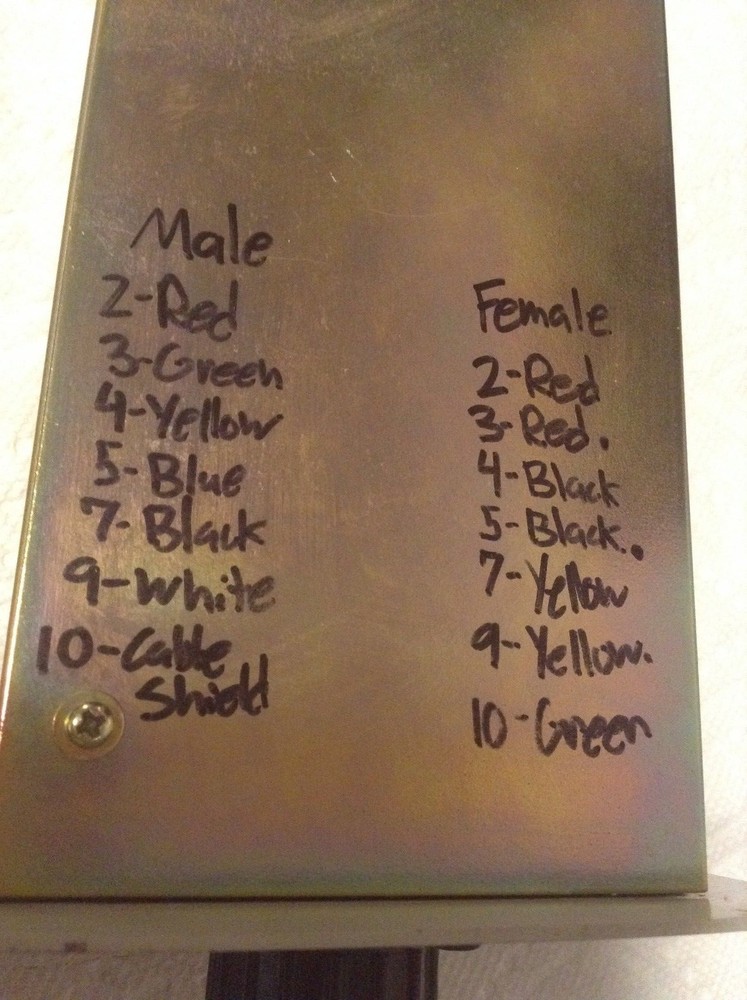 Male
2-Red
3-Green
4-Yellow
5-Blue
7-Black
9-White
10-Cable
Shield
Female
2-Red
3-Red.
4-Black
5-Black.
7-Yellow
9-Yellow.
10-Green